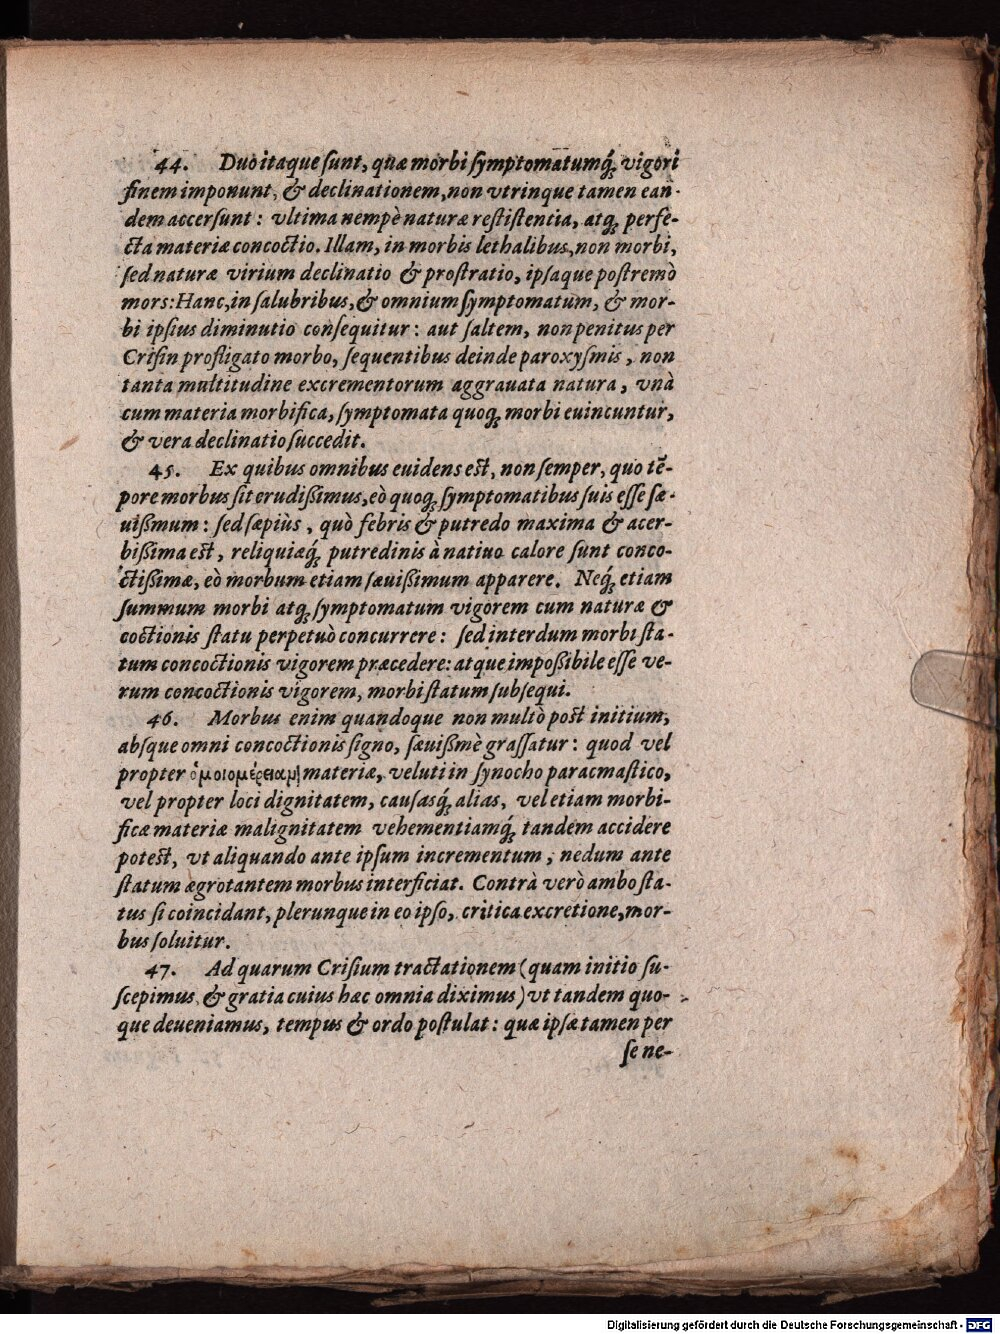 44. Duo itaque ſunt, quæ morbi ſymptomatumq́; vigori
finem imponunt, & declinationem, non vtrinque tamen ean-
dem accerſunt: vltima nempè naturæ reſtiſtentia, atq; perfe-
cta materiæ concoctio. Illam, in morbis lethalibus, non morbi,
ſed naturæ virium declinatio & proſtratio, ipſaque poſtremò
mors: Hanc, in ſalubribus, & omnium ſymptomatum, & mor-
bi ipſius diminutio conſequitur: aut ſaltem, non penitus per
Criſin profligato morbo, ſequentibus deinde paroxyſmis, non
tanta multitudine excrementorum aggrauata natura, vnà
cum materia morbifica, ſymptomata quoq; morbi euincuntur,
& vera declinatio ſuccedit.
45. Ex quibus omnibus euidens eſt, non ſemper, quo tē-
pore morbus ſit erudißimus, eò quoq; ſymptomatibus ſuis eſſe ſæ-
uißmum: ſed ſæpiùs, quò febris & putredo maxima & acer-
bißima eſt, reliquiæq́; putredinis à natiuo calore ſunt conco-
ctißimæ, eò morbum etiam ſæuißimum apparere. Neq́; etiam
ſummum morbi atq; ſymptomatum vigorem cum naturæ &
coctionis ſtatu perpetuò concurrere: ſed interdum morbi ſta-
tum concoctionis vigorem præcedere: atque impoßibile eſſe ve-
rum concoctionis vigorem, morbi ſtatum ſubſequi.
46. Morbus enim quandoque non multò poſt initium,
abſque omni concoctionis ſigno, ſæuißmè graſſatur: quod vel
propter ὁμοιομέρειαμ materiæ, veluti in ſynocho paracmaſtico,
vel propter loci dignitatem, cauſasq́; alias, vel etiam morbi-
ficæ materiæ malignitatem vehementiamq́; tandem accidere
poteſt, vt aliquando ante ipſum incrementum, nedum ante
ſtatum ægrotantem morbus interficiat. Contrà verò ambo ſta-
tus ſi coincidant, plerunque in eo ipſo, critica excretione, mor-
bus ſoluitur.
47. Ad quarum Criſium tractationem (quam initio ſu-
ſcepimus & gratia cuius hæc omnia diximus) vt tandem quo-
que deueniamus, tempus & ordo poſtulat: quæ ipſæ tamen per
ſe ne-
Digitalisierung gefördert durch die Deutsche Forschungsgemeinschaft - DFG